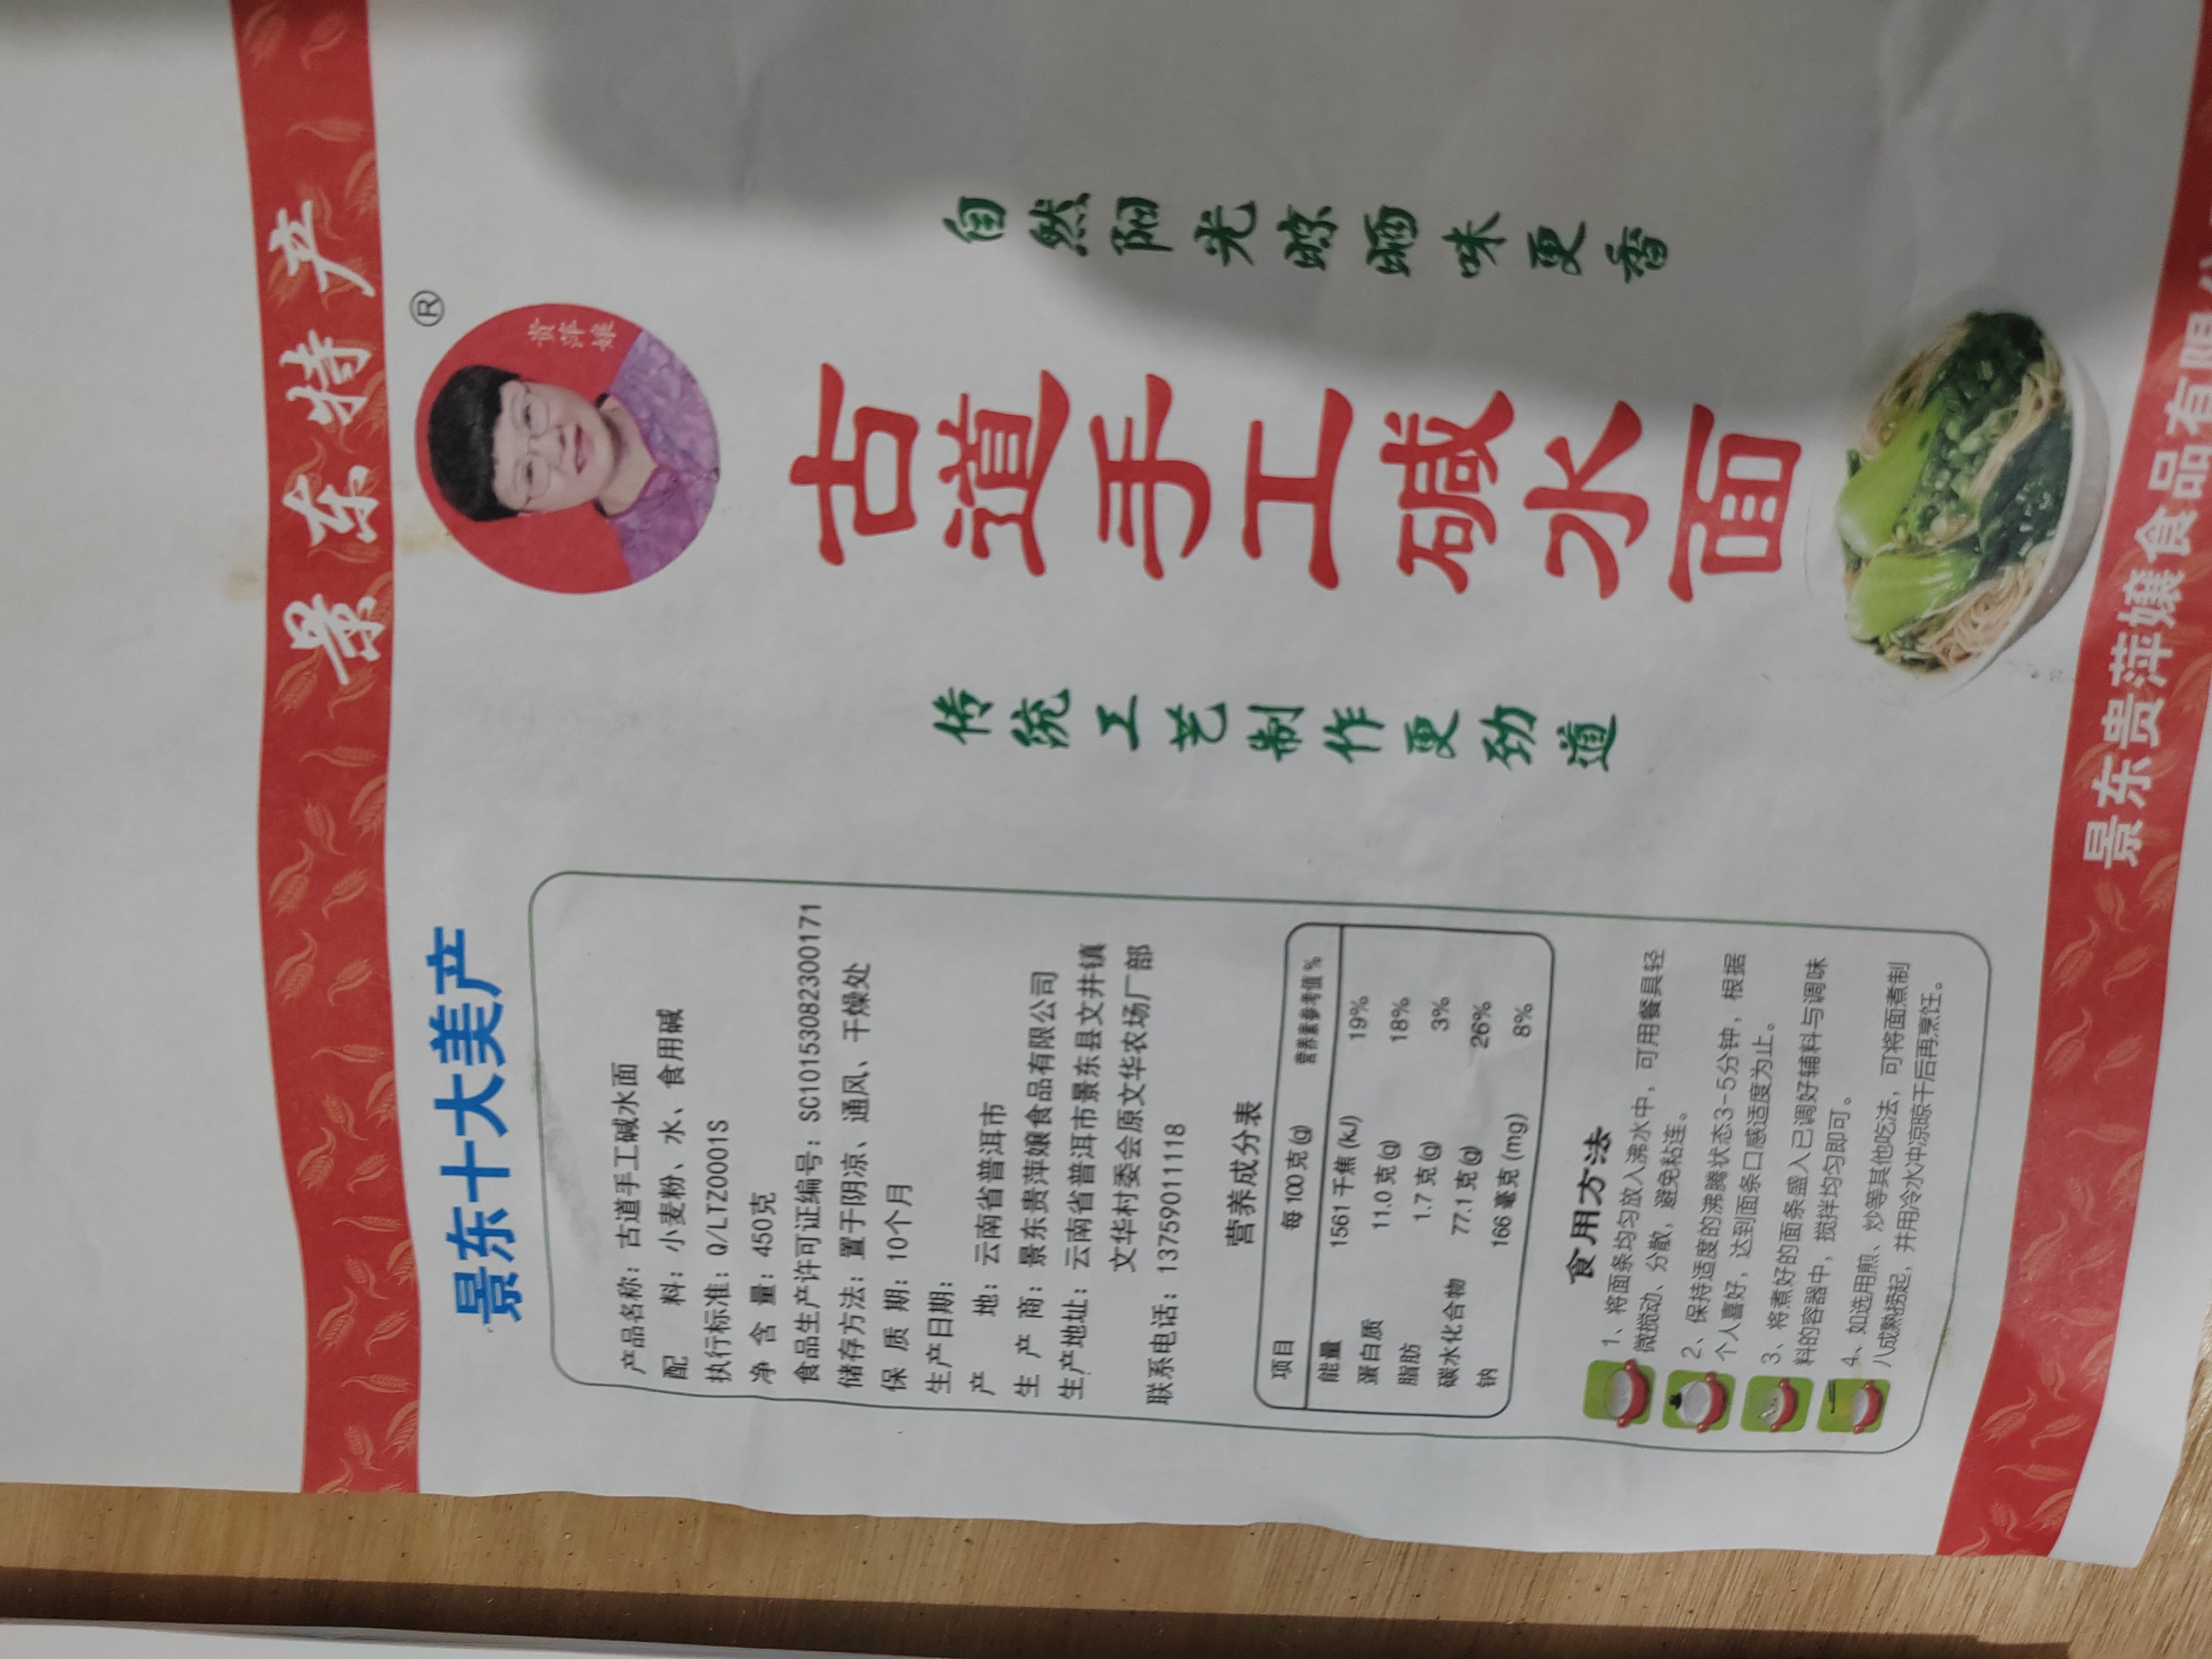 景东特产
®
贵萍孃
景东十大美产
古道手工碱水面
传统工艺制作更劲道
自然阳光晾晒味更香
产品名称：古道手工碱水面
配 料：小麦粉、水、食用碱
执行标准：Q/LTZ0001S
净 含 量：450克
食品生产许可证编号：SC10153082300171
储存方法：置于阴凉、通风、干燥处
保 质 期：10个月
生产日期：
产 地：云南省普洱市
生 产 商：景东贵萍孃食品有限公司
生产地址：云南省普洱市景东县文井镇
文华村委会原文华农场厂部
联系电话：13759011118
营养成分表
项目 每 100 克 (g) 营养素参考值 %
能量 1561 千焦 (kJ) 19%
蛋白质 11.0 克 (g) 18%
脂肪 1.7 克 (g) 3%
碳水化合物 77.1 克 (g) 26%
钠 166 毫克 (mg) 8%
食用方法
1、将面条均匀放入沸水中，可用餐具轻
微搅动、分散，避免粘连。
2、保持适度的沸腾状态3-5分钟，根据
个人喜好，达到面条口感适度为止。
3、将煮好的面条盛入已调好辅料与调味
料的容器中，搅拌均匀即可。
4、如选用煎、炒等其他吃法，可将面煮制
八成熟捞起，并用冷水冲凉晾干后再烹饪。
景东贵萍孃食品有限